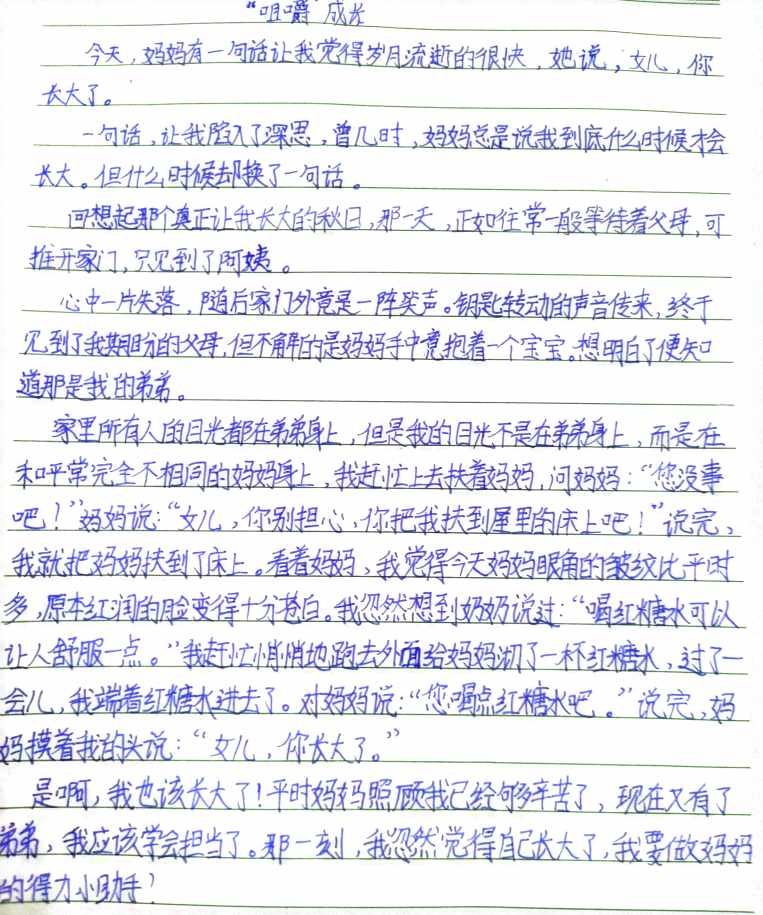 “咀嚼”成长
今天，妈妈有一句话让我觉得岁月流逝的很快，她说，女儿，你
长大了。
一句话，让我陷入了深思，曾几时，妈妈总是说我到底什么时候才会
长大。但什么时候却换了一句话。
回想起那个真正让我长大的秋日，那一天，正如往常一般等待着父母，可
推开家门，只见到了阿姨。
心中一片失落，随后家门外竟是一阵笑声。钥匙转动的声音传来，终于
见到了我期盼的父母，但不解的是妈妈手中竟抱着一个宝宝。想明白了便知
道那是我的弟弟。
家里所有人的目光都在弟弟身上，但是我的目光不是在弟弟身上，而是在
和平常完全不相同的妈妈身上，我赶忙上去扶着妈妈，问妈妈：“您没事
吧！”妈妈说：“女儿，你别担心，你把我扶到屋里的床上吧！”说完，
我就把妈妈扶到了床上。看着妈妈，我觉得今天妈妈眼角的皱纹比平时
多，原本红润的脸变得十分苍白。我忽然想到奶奶说过：“喝红糖水可以
让人舒服一点。”我赶忙悄悄地跑去外面给妈妈沏了一杯红糖水，过了一
会儿，我端着红糖水进去了。对妈妈说：“您喝点红糖水吧。”说完，妈
妈摸着我的头说：“女儿，你长大了。”
是啊，我也该长大了！平时妈妈照顾我已经够辛苦了，现在又有了
弟弟，我应该学会担当了。那一刻，我忽然觉得自己长大了，我要做妈妈
的得力小助手！